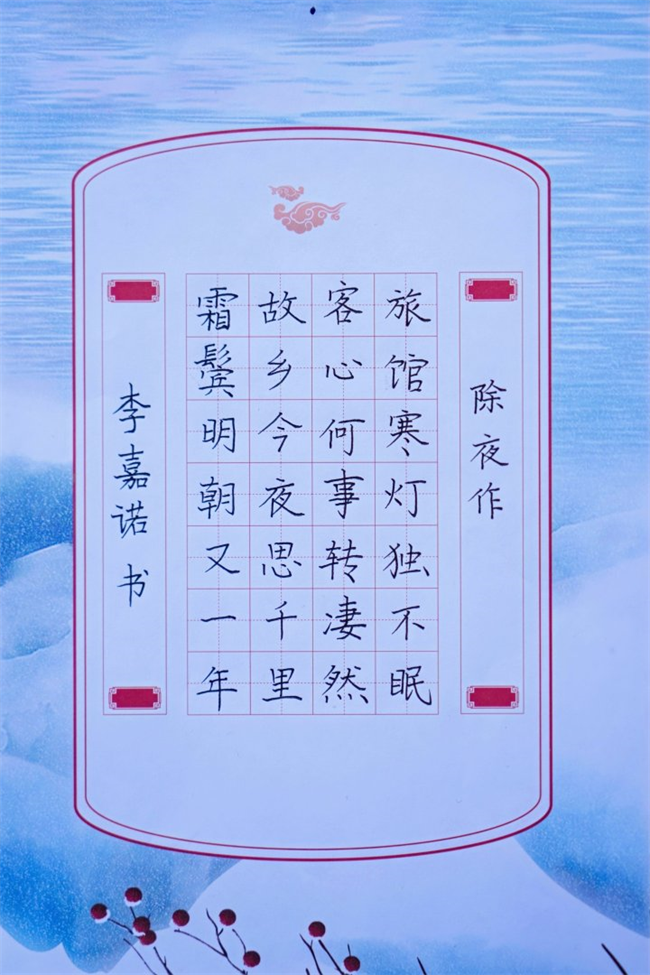 除夜作
旅馆寒灯独不眠
客心何事转凄然
故乡今夜思千里
霜鬓明朝又一年
李嘉诺 书